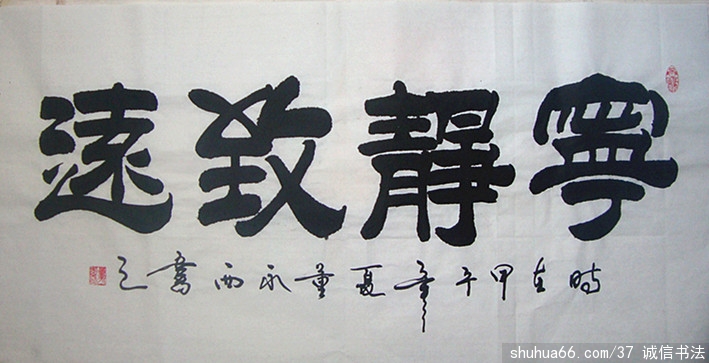 寧靜致遠
時在甲午年夏董永西書之
shuhua66.com/37 诚信书法